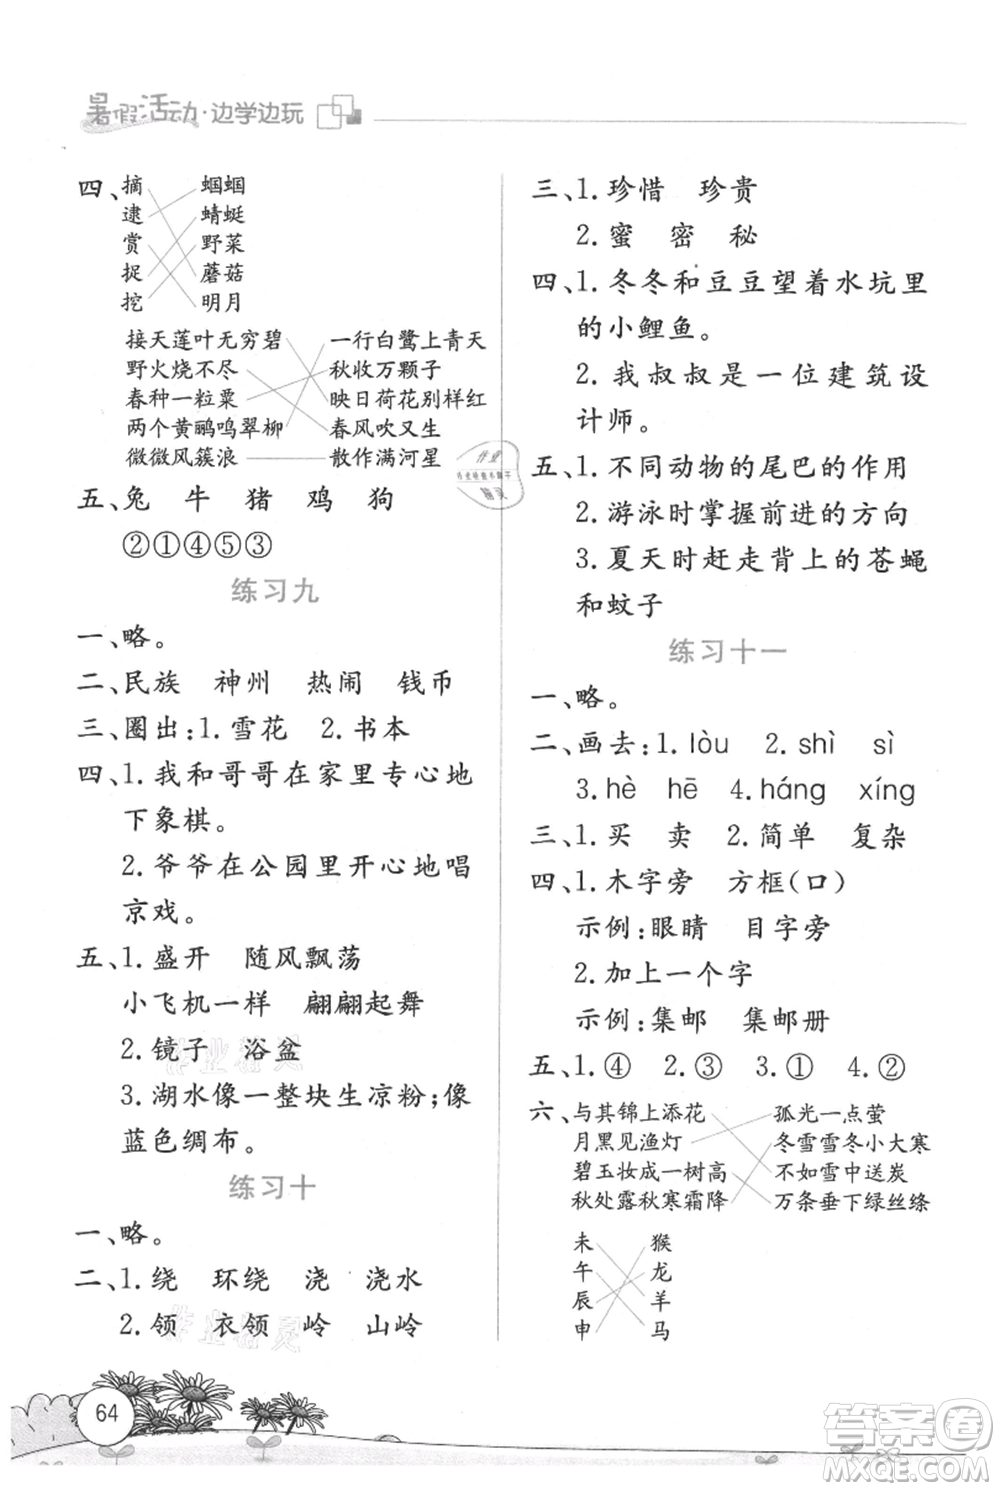 暑假活动·边学边玩
四、摘 蝈蝈
逮 蜻蜓
赏 野菜
捉 蘑菇
挖 明月
接天莲叶无穷碧 一行白鹭上青天
野火烧不尽 秋收万颗子
春种一粒粟 映日荷花别样红
两个黄鹂鸣翠柳 春风吹又生
微微风簇浪 散作满河星
五、兔 牛 猪 鸡 狗
②①④⑤③
练习九
一、略。
二、民族 神州 热闹 钱币
三、圈出:1.雪花 2.书本
四、1.我和哥哥在家里专心地
下象棋。
2.爷爷在公园里开心地唱
京戏。
五、1.盛开 随风飘荡
小飞机一样 翩翩起舞
2.镜子 浴盆
3.湖水像一整块生凉粉;像
蓝色绸布。
练习十
一、略。
二、1.绕 环绕 浇 浇水
2.领 衣领 岭 山岭
64
三、1.珍惜 珍贵
2.蜜 密 秘
四、1.冬冬和豆豆望着水坑里
的小鲤鱼。
2.我叔叔是一位建筑设
计师。
五、1.不同动物的尾巴的作用
2.游泳时掌握前进的方向
3.夏天时赶走背上的苍蝇
和蚊子
练习十一
一、略。
二、画去:1.lòu 2.shì sì
3.hè hē 4.háng xíng
三、1.买 卖 2.简单 复杂
四、1.木字旁 方框(口)
示例:眼睛 目字旁
2.加上一个字
示例:集邮 集邮册
五、1.④ 2.③ 3.① 4.②
六、与其锦上添花 孤光一点萤
月黑见渔灯 冬雪雪冬小大寒
碧玉妆成一树高 不如雪中送炭
秋处露秋寒霜降 万条垂下绿丝绦
未 猴
午 龙
辰 羊
申 马
作业
精灵
作业精灵
作业精灵
答案圈
MXQE.COM